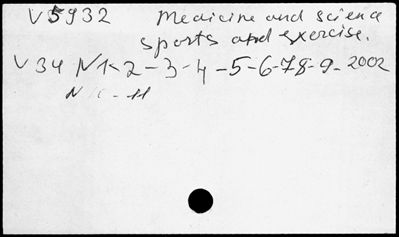 V5932 Medicine and science
sports and exercise.
V34 N1-2-3-4-5-6-78-9-2002
N 10-11